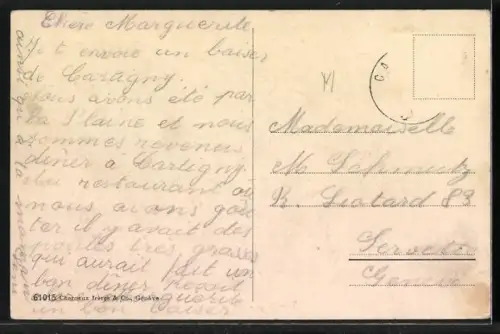 Chère Marguerite
Je t envoie un baiser
de Cartigny.
Nous avons été par
la Plaine et nous
sommes revenus
dîner a Cartigny
du restaurant ou
nous avons goû
ter il y avait des
poules très grasses
qui aurait fait un
bon dîner
un bon baiser
ainsi qu a la
61015 Charnaux frères & Co., Genève
Mademoiselle
M Schmutz
R. Liotard 83
Servette
Genève